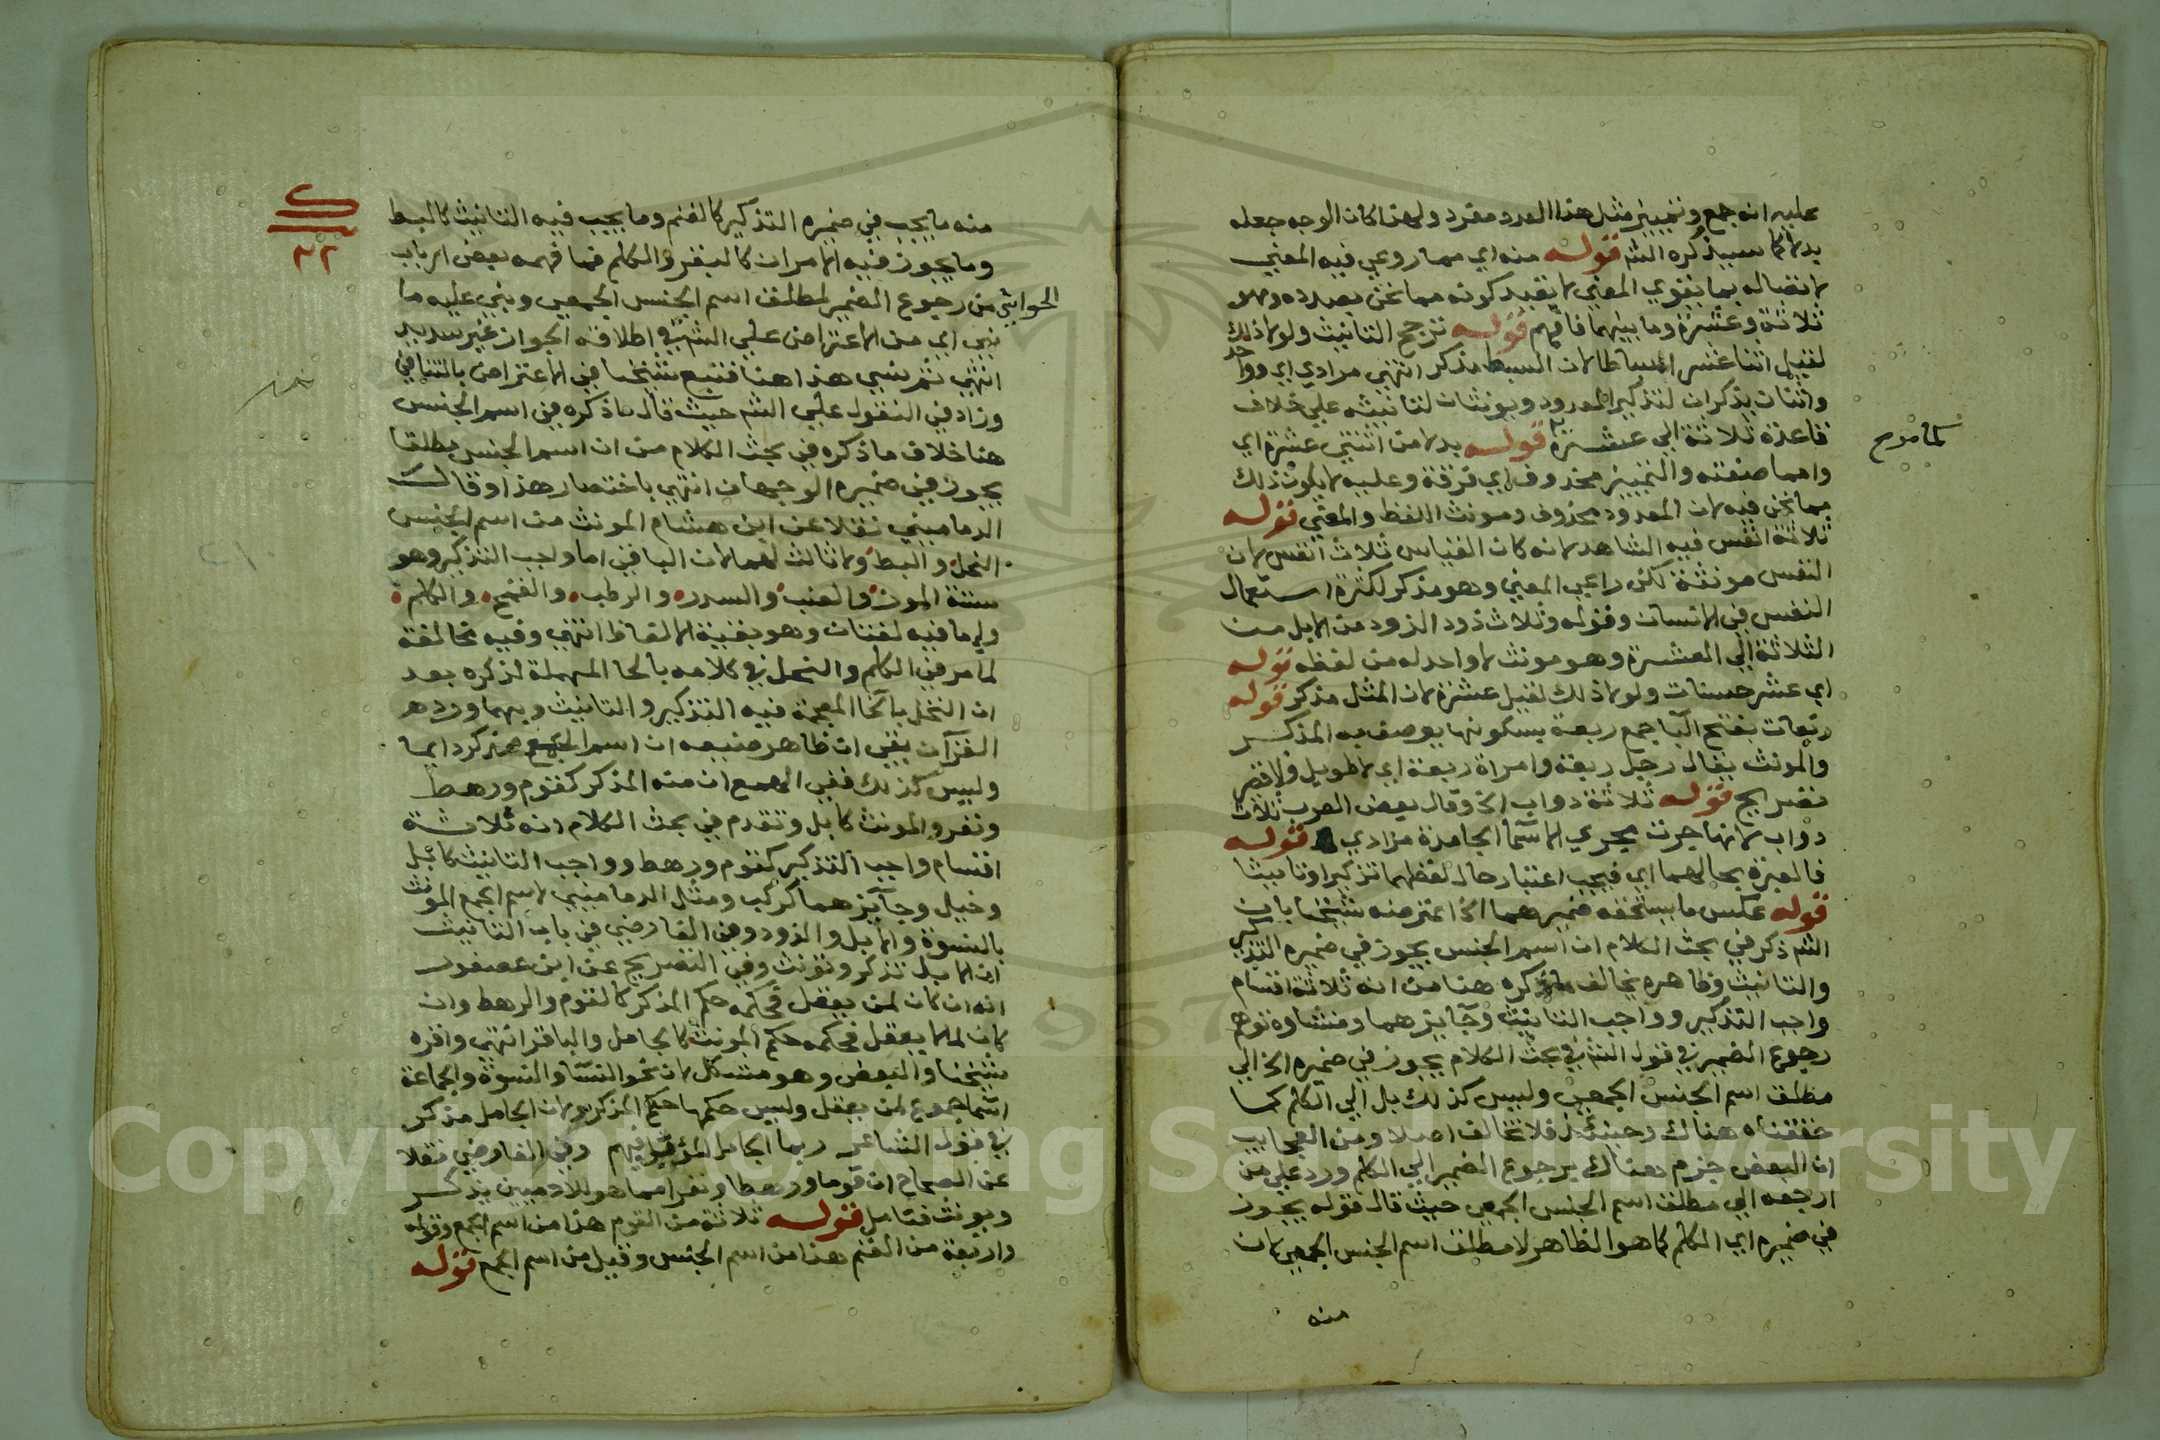 عليه انه جمع وتمييز مثل هذا العدد مفرد ولهذا كان الاوجه جعله
بدلا كما سيذكره الشم قوله منه اي مما روعي فيه المعني
لاتصاله بما يقوي المعني لا بقيد كونه مما نحن بصدده وهو
ثلاثة وعشرة وما بينهما فافهم قوله ترجح التانيث ولولا ذلك
لقيل اثنا عشر اسباطا لان السبط مذكر انتهي مرادي اي وواحد
واثنان يذكران لتذكير المعدود ويونثان لتانيثه علي خلاف
قاعدة ثلاثة الي عشرة قوله بدلا من اثنتي عشرة اي
وامما صفته والتمييز محذوف اي فرقة وعليه لا يكون ذلك
مما نحن فيه لان المعدود محذوف ومونث اللفظ والمعني قوله
ثلاثة انفس فيه الشاهد لانه كان القياس ثلاث انفس لان
النفس مونثة لكن راعي المعني وهو مذكر لكثرة استعمال
النفس في الانسان وقوله وثلاث ذود الذود من الابل من
الثلاثة الي العشرة وهو مونث لا واحد له من لفظه قوله
اي عشر حسنات ولولا ذلك لقيل عشرة لان المثل مذكر قوله
ربعات بفتح البا جمع ربعة بسكونها يوصف به المذكر
والمونث يقال رجل ربعة وامراة ربعة اي لا طويل ولا قصير
تصريح قوله ثلاثة دواب الخ وقال بعض العرب ثلاث
دواب لانها جرت مجري الاسما الجامدة مرادي قوله
فالعبرة بحالهما اي فيجب اعتبار حال لفظهما تذكيرا وتانيثا
قوله عكس ما يستحقه ضميرهما الخ اعترضه شيخنا بان
الشم ذكر في بحث الكلام ان اسم الجنس يجوز في ضميره التذكير
والتانيث وظاهره يخالف ما ذكره هنا من انه ثلاثة اقسام
واجب التذكير وواجب التانيث وجائزهما ومنشاوه توهم
رجوع الضمير في قول الشم في بحث الكلام يجوز في ضميره الخ الي
مطلق اسم الجنس الجمعي وليس كذلك بل الي الكلم كما
حققناه هناك وحينئذ فلا تخالف اصلا ومن العجايب
ان البعض جزم هناك برجوع الضمير الي الكلم ورد علي من
ارجعه الي مطلق اسم الجنس الجمعي حيث قال قوله يجوز
في ضميره اي الكلم كما هو الظاهر لا مطلق اسم الجنس الجمعي لان
منه
كما مرح
منه ما يجب في ضميره التذكير كالغنم وما يجب فيه التانيث كالبط
وما يجوز فيه الامران كالبقر والكلم فما فهمه بعض ارباب
الحواشي من رجوع الضمير لمطلق اسم الجنس الجمعي وبني عليه ما
بني اي من الاعتراض علي الشم في اطلاقه الجواز غير سديد
انتهي ثم نسي هذا هنا فتبع شيخنا في الاعتراض بالتنافي
وزاد في التقول علي الشم حيث قال ما ذكره في اسم الجنس
هنا خلاف ما ذكره في بحث الكلام من ان اسم الجنس مطلقا
يجوز في ضميره الوجهان انتهي باختصار هذا وقال
الدماميني نقلا عن ابن هشام المونث من اسم الجنس
النحل والبط ولا ثالث لهما لان الباقي اما واجب التذكير وهو
ستة الموز والعنب والسدر والرطب والقمح والكلم
واما فيه لغتان وهو بقية الالفاظ انتهي وفيه مخالفة
لما مر في الكلم والنحل في كلامه بالحا المهملة لذكره بعد
ان النخل بالخا المعجمة فيه التذكير والتانيث وبهما ورد
القرآن بقي ان ظاهر صنيعه ان اسم الجمع مذكر دايما
وليس كذلك ففي الهمع ان منه المذكر كقوم ورهط
ونفر والمونث كابل وتقدم في بحث الكلام انه ثلاثة
اقسام واجب التذكير كقوم ورهط وواجب التانيث كابل
وخيل وجائزهما كركب ومثل الدماميني لاسم الجمع المونث
بالنسوة والابل والذود وفي الفارضي في باب التانيث
ان الابل تذكر وتونث وفي التصريح عن ابن عصفور
انه ان كان لمن يعقل فحكمه حكم المذكر كالقوم والرهط وان
كان لما لا يعقل فحكمه حكم المونث كالجامل والباقر انتهي واقره
شيخنا والبعض وهو مشكل لان نحو النسا والنسوة والجماعة
اسما جموع لمن يعقل وليس حكمها حكم المذكر ولان الجامل مذكر
في قول الشاعر ربما الجامل المؤبل فيهم وفي الفارضي نقلا
عن الصحاح ان قوما ورهطا ونفرا مما هو للادميين يذكر
ويونث فتامل قوله ثلاثة من القوم هذا من اسم الجمع وقوله
واربعة من الغنم هذا من اسم الجنس وقيل من اسم الجمع قوله
٣٢
Copyright © King Saud University
1957